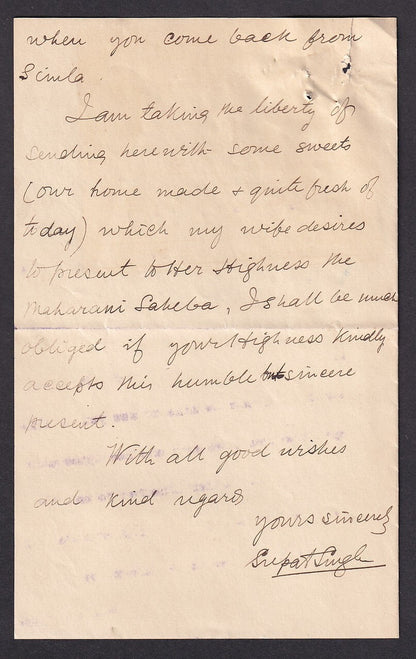 when you come back from
Simla.
I am taking the liberty of
sending herewith some sweets
(our home made & quite fresh of
today) which my wife desires
to present to Her Highness the
Maharani Saheba, I shall be much
obliged if your Highness kindly
accepts this humble but sincere
present.
With all good wishes
and kind regards
yours sincerely
Sripat Singh